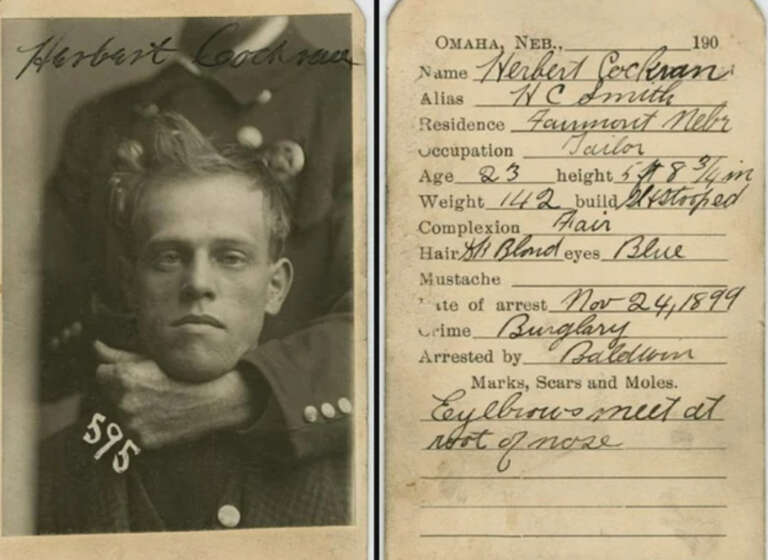 Herbert Cockran
595
OMAHA, NEB., 190
Name Herbert Cockran
Alias H C Smith
Residence Fairmont Nebr
Occupation Tailor
Age 23 height 5 ft 8 3/4 in
Weight 142 build Slstooped
Complexion Fair
Hair Dk Blond eyes Blue
Mustache
Date of arrest Nov 24, 1899
Crime Burglary
Arrested by Baldwin
Marks, Scars and Moles.
Eyebrows meet at
root of nose